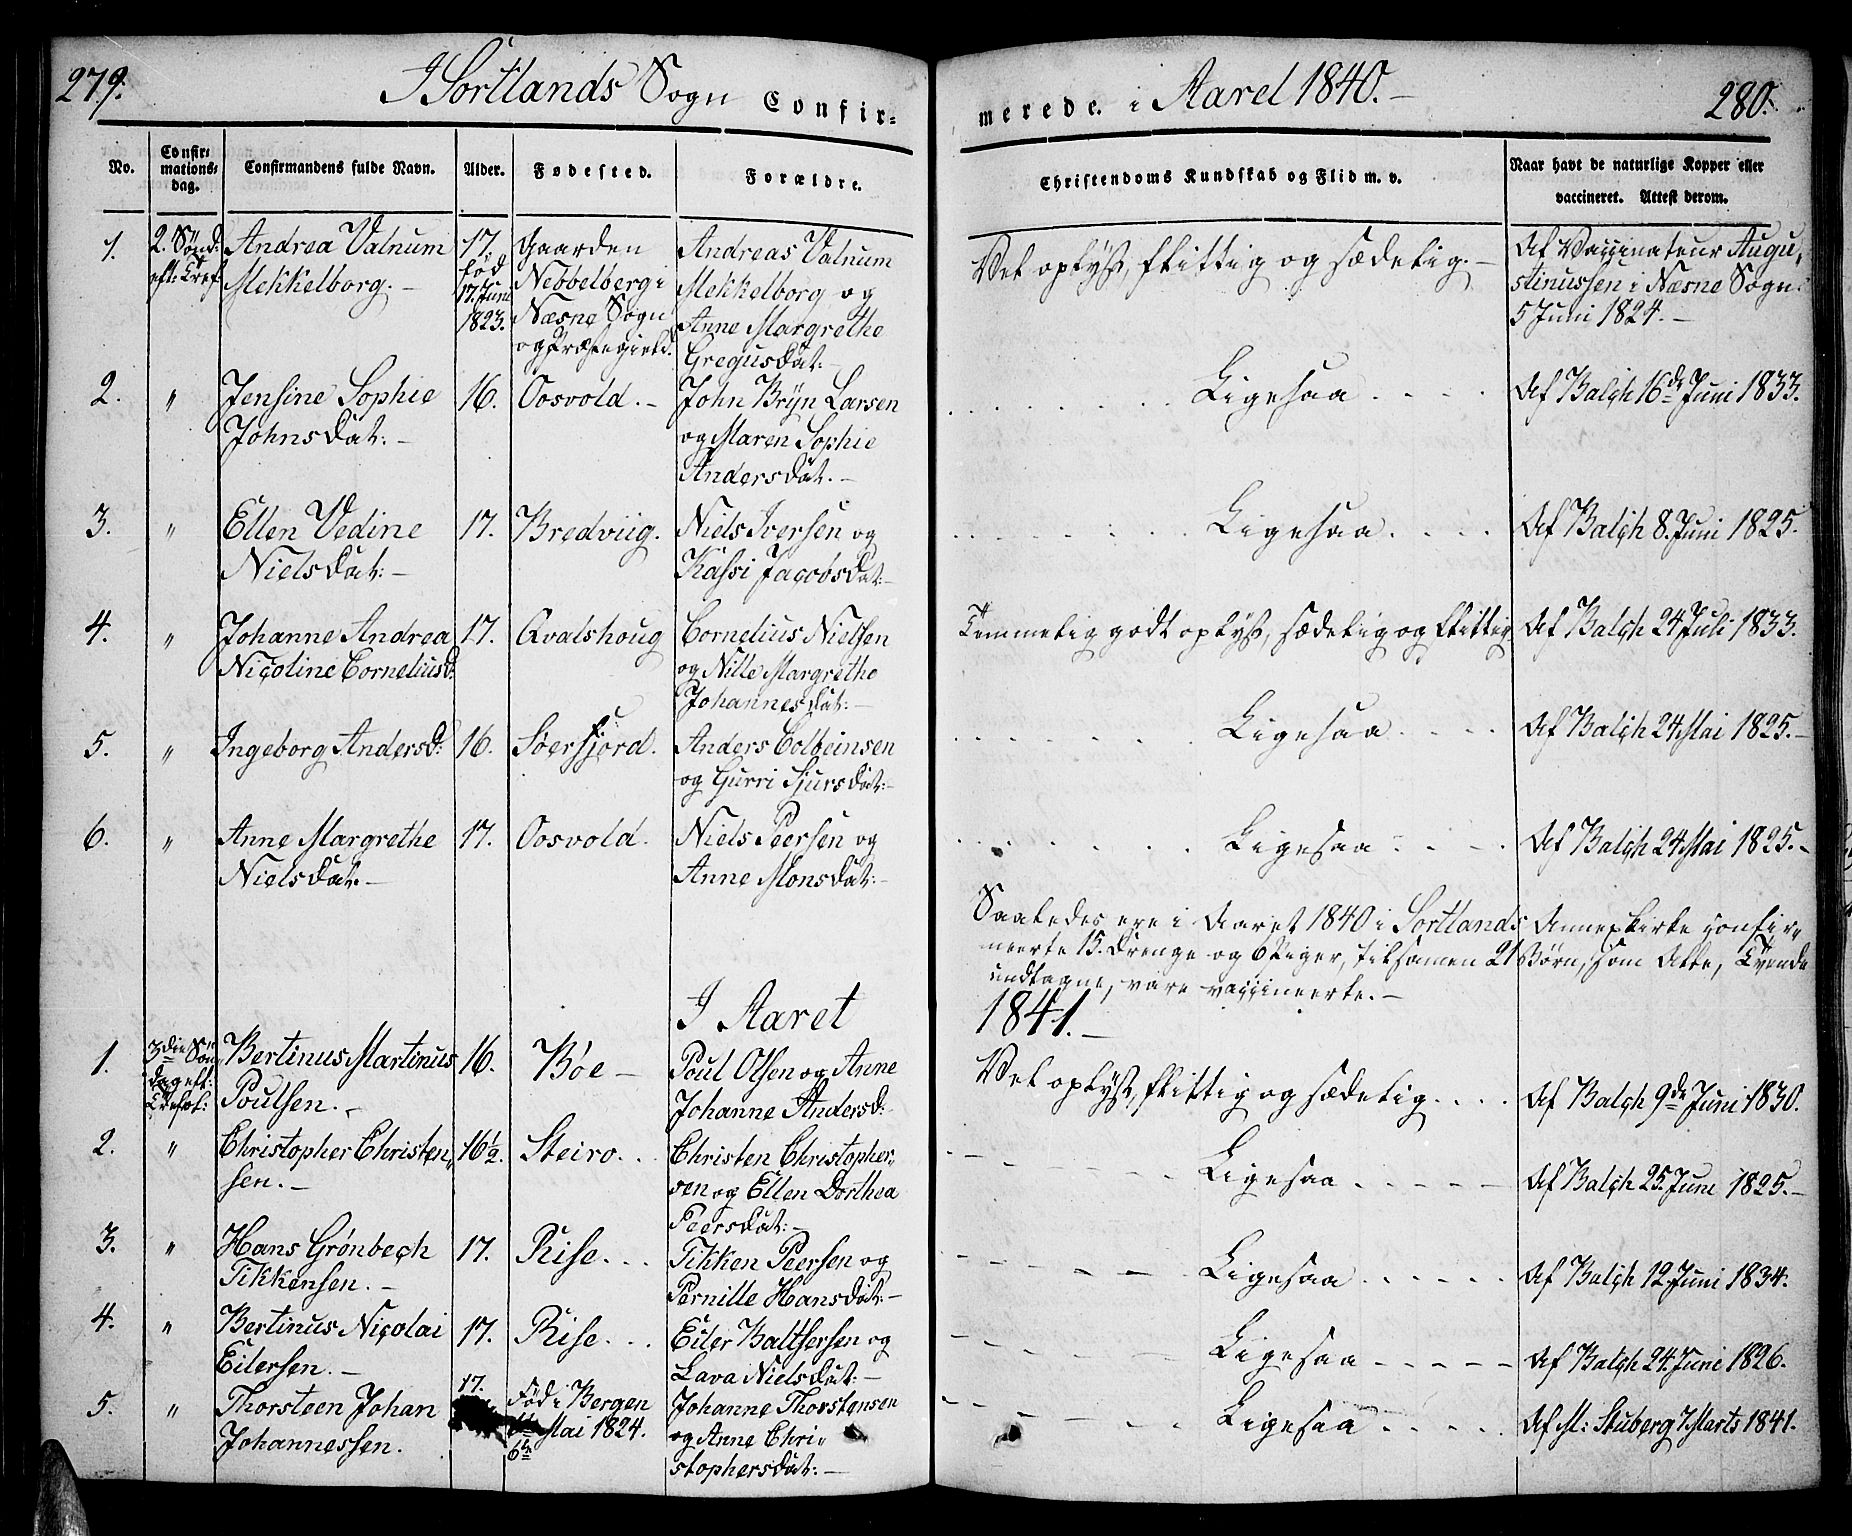 279.
I Sortlands Sogn Confir-
merede. i Aaret 1840.-
280.
No.
Confir-
mations-
dag.
Confirmandens fulde Navn.
Alder.
Fødested.
Forældre.
Christendoms Kundskab og Flid m. v.
Naar havt de naturlige Kopper eller
vaccineret. Attest derom.
1.
2. Sønd:
eft: Tref.
Andrea Valnum
Mekkelborg.-
17.
fød
17. Juni
1823.
Gaarden
Nebbelberg i
Næsne Sogn
og Præstegield.
Andreas Valnum
Mekkelborg og
Anne Margrethe
Gregusdat:-
Vel oplyst, flittig og sædelig.-
Af Vaccinateur Augu„
stinussen i Næsne Sogn
5 Juni 1824.-
2.
"
Jensine Sophie
Johnsdat:-
16.
Oosvold.-
John Bryn Larsen
og Maren Sophie
Andersdat:-
Ligesaa
Af Balch 16de Juni 1833.
3.
"
Ellen Vedine
Nielsdat:-
17.
Bredviig.
Niels Iversen og
Kassi Jacobsdat:-
Ligesaa
Af Balch 8. Juni 1825.
4.
"
Johanne Andrea
Nicoline Corneliusd:
17.
Qvalshoug
Cornelius Nielsen
og Nille Margrethe
Johannesdat:-
Temmelig godt oplyst, sædelig og flittig
Af Balch 24 Juli 1833.
5.
"
Ingeborg Andersd:
16.
Søerfjord.
Anders Colbeinsen
og Gurri Sjursdat:-
Ligesaa
Af Balch 24 Mai 1825.-
6.
"
Anne Margrethe
Nielsdat:-
17.
Oosvold.
Niels Peersen og
Anne Monsdat:-
Ligesaa
Af Balch 24 Mai 1825.-
Saaledes ere i Aaret 1840 i Sortlands Annexkirke confir„
meerte 15. Drenge og 6 Piger, tilsamen 21 Børn, som Alle, Tvende
undtagne, vare vaccineerte.-
I Aaret
1841.-
1.
3die Søn„
dag eft:
Trefol:
Bertinus Martinus
Poulsen.-
16.
Bøe-
Poul Olsen og Anne
Johanne Andersd:
Vel oplyst, flittig og sædelig....
Af Balch 9de Juni 1830.
2.
"
Christopher Christen„
sen.-
16½.
Steiro...
Christen Christopher„
sen og Ellen Dorthea
Peersdat:-
Ligesaa
Af Balch 25. Juni 1825.-
3.
"
Hans Grønbech
Tikkensen.-
17.
Rise...
Tikken Peersen og
Pernille Hansdat:-
Ligesaa
Af Balch 12. Juni 1834.
4.
"
Bertinus Nicolai
Eilersen.-
17.
Rise...
Eiler Baltsersen og
Lava Nielsdat:-
Ligesaa
Af Balch 24. Juni 1826.
5.
"
Thorsteen Johan
Johannessen.
17.
Fød i Bergen
Mai 1824.
6te
Johanne Thorstensen
og Anne Chri„
stophersdat:-
Ligesaa
Af M: Stuberg 7 Marts 1841.